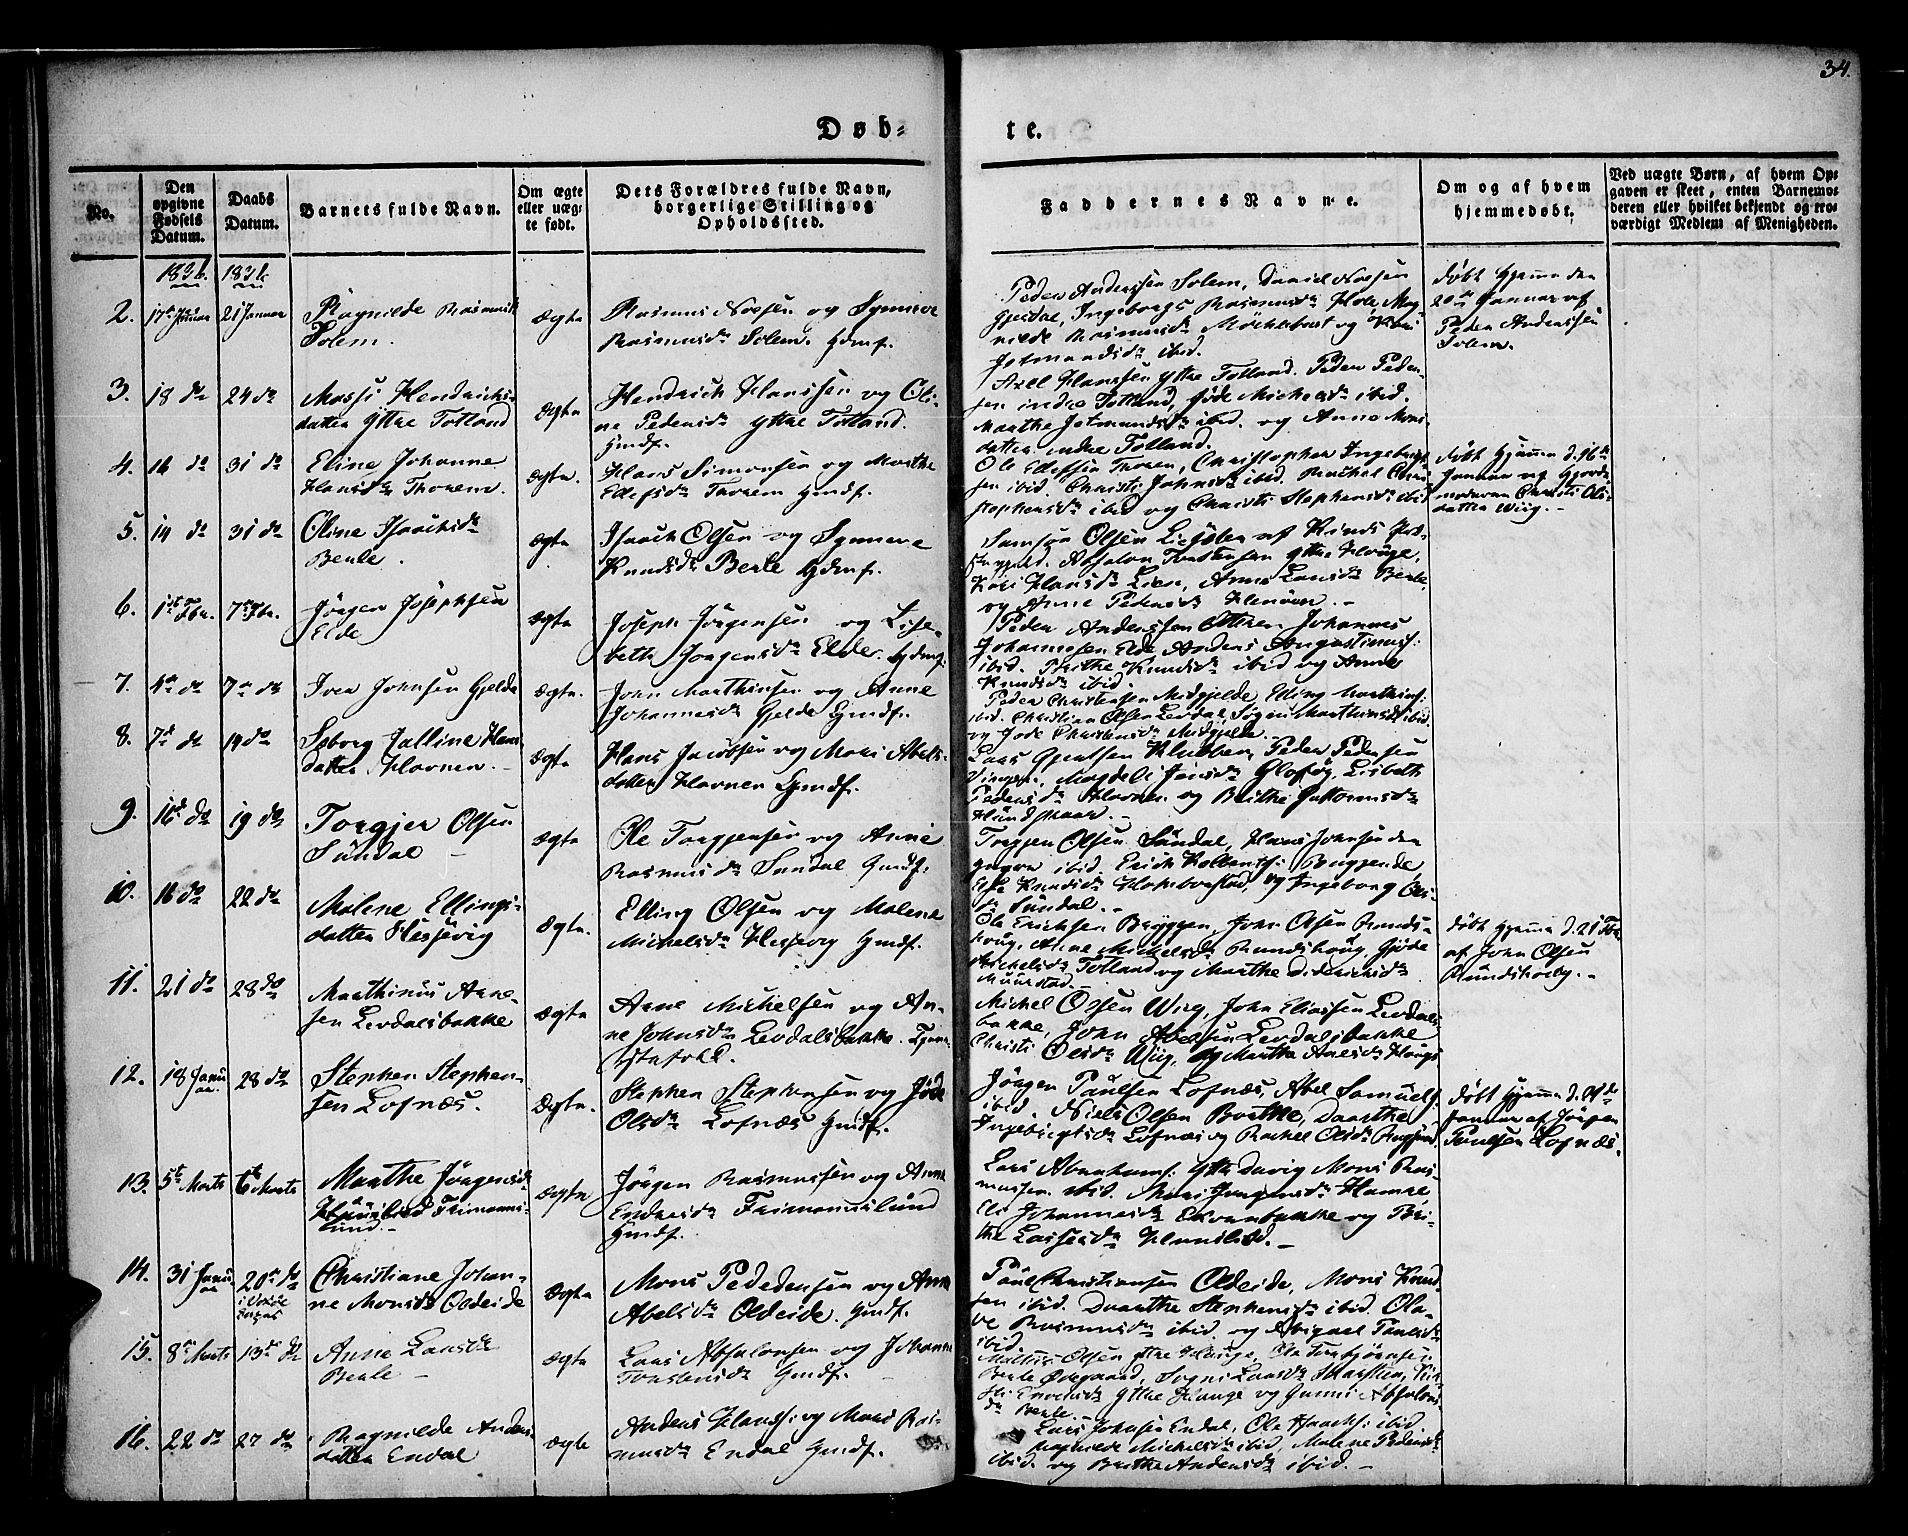 34.
Døb-
te.
No.
Den opgivne Fødsels Datum.
Daabs Datum.
Barnets fulde Navn.
Om ægte eller uægte født.
Dets Forældres fulde Navn, borgerlige Stilling og Opholdssted.
Faddernes Navne.
Om og af hvem hjemmedøbt.
Ved uægte Børn, af hvem Opgaven er skeet, enten Barnemoderen eller hvilket bekjendt og troværdigt Medlem af Menigheden.
1836. 1836
2. 17de Januar 21 Januar Ragnilde Rasmusd
Solem.
ægte
Rasmus Nossen og Synneve
Rasmusdr Solem. Gdmf.
Peder Anderssen Solem, Daniel Nossen
Gjesdal, Ingeborg Rasmusdr Hole, Mag-
nilde Rasmusdr Myklebust og Kari
Jetmundsdr ibid.
døbt hjemme den
20de Januar af
Peder Anderssen
Solem.
3. 18 do 24 do Massi Hendrichs-
datter Yttre Totland
ægte
Hendrich Hanssen og Oli-
ne Pedersdr Yttre Totland.
Gmdf.
Axel Hanssen Yttre Totland. Peder Peder-
sen indre Totland, Jøde Michelsdr ibid.
Marthe Jetmundsdr ibid. og Anne Mons
datter indre Totland.
4. 16 do 31 do Eline Johanne
Hansdr Thorem.
ægte.
Hans Simonsen og Marthe
Edissdr Thorem Gmdf.
Ole Edissen Thorem, Christopher Ingebrigt
sen ibid. Christi Johnsdr ibid Rachel Chri-
stophersdr ibid og Christi Stephensdr ibid
døbt hjemme d. 16de
Januar og Gjorde-
moderen Christi Ols
datter Wiig.
5. 14 do 31 do Oline Isaachsdr
Berle.
ægte
Isaach Olsen og Synneve
Knudsdr Berle Gdmf.
Samson Olsen af Kinds Præ-
stegjeld. Absalon Torstensen Yttre Houge,
Kari Hansdr Lien, Anne Larsdr Berle,
og Anne Pedersdr
6. 1ste Fbr. 7de Fbr. Jørgen Josephsen
Elde
ægte
Joseph Jørgensen og Lise-
beth Jørgensdr Elde. Gdmf.
Peder Anderssen Johannes
Johannesen Elde Anders Augustinuss:
ibid. Brithe Knudsdr ibid og Anne
Knudsdr ibid.
7. 7de do Iver Johnsen Gjelde
ægte.
John Marthinsen og Anne
Johannesdr Gjelde Gmdf.
Peder Christensen Midgjelde, Elling Marthins:
ibid. Christian Olsen Levdal, Søgni Marthinsdr ibid
og Jøde Christensdr Midgjelde.
8. 7de do 14 do Søborg Jalline Hans
datter Havnen.
ægte
Hans Jacobsen og Mari Abels-
datter Havnen Gmdf.
Lars Gjertsen Klubben, Peder Pedersen
Vingen. Magdeli Jensdr Lisbeth
Pedersdr Havnen og Brithe Guttormsdr
Hundskaar.
9. 16de do 19 do Torgjer Olsen
Sündal
ægte
Ole Torgjersen og Anne
Rasmusdr Sundal Gmdf.
Torgjer Olsen Sündal, Hans Johnsen den
yngre ibid. Erich
Knudsdr og Ingeborg Ols-
dr Sündal.
10. 16 do 22 do Malene Ellings-
datter Hessevig
ægte.
Elling Olsen og Malene
Michelsdr Hessevig Gmdf.
Ole Erichsen Bryggen, John Olsen Runds-
houg, Anne Michelsdr Rundshoug, Gjøde
Michelsdr Totland og Marthe Didrichsdr
Maurstad.
døbt hjemme d. 21 Fbr
af John Olsen
Rundshoug.
11. 21 do 28 do Marthinus Arne-
sen Levdalsbakke
ægte
Arne Michelsen og An-
ne Johnsdr Levdalsbakke. Tjene-
stefolk.
Michel Olsen Wiig, John Eliassen Levdals
bakke, John Abelsen Levdalsbakke
Christi Olsdr Wiig, og Marthe Abelsdr Houge
12. 18 Januar 28 do Stephen Stephen-
sen Lofnæs.
Ægte.
Stephen Stephensen og Jøde
Olsdr Lofnæs Gmdf.
Jørgen Paulsen Lofnæs, Abel Samuels:
ibid. Niels Olsen Dorthe
Ingebrigtsdr Lofnæs og Rachel Olsdr
døbt hjemme d.
Januar af Jørgen
Paulsen Lofnæs.
13. 5te Marts 6te Marts Marthe Jørgensdr
Frimanns-
lund.
ægte
Jørgen Rasmussen og Anne
Endresdr Frimannslund
Gmdf.
Lars Abrahams: Yttre Davig Mons Ras-
mussen ibid. Mari Jørgensdr Hamre,
Eli Johannesdr og Bri-
the Lassesdr
14. 31 Januar 20de do
Christiane Johan-
ne Monsdr Oldeide
Ægte
Mons Pedersen og Anne
Abelsdr Oldeide. Gmdf.
Paul Christiansen Oldeide, Mons Knud
sen ibid. Dorthe Stephensdr ibid. Ola-
ve Rasmusdr ibid. og Abigael Paulsdr
ibid.
15. 8de Marts 13de do Anne Larsdr
Berle
ægte
Lars Absalonsen og Johanne
Torstensdr Gmdf.
Mattis Olsen Yttre Houge, Ole Torbjørnsen
Berle Ødegaard, Søgni Larsdr
Yttre Houge og Gunni Absalons
dr Berle.
16. 22 do 27 do Ragnilde Anders
datter Endal
ægte
Anders Hanss: og Mari Ras-
musdr Endal Gmdf.
Lars Johnsen Endal, Ole Isaachs: ibid
Ragnilde Michelsdr ibid, Malene Pedersdr
ibid. og Brithe Andersdr ibid.